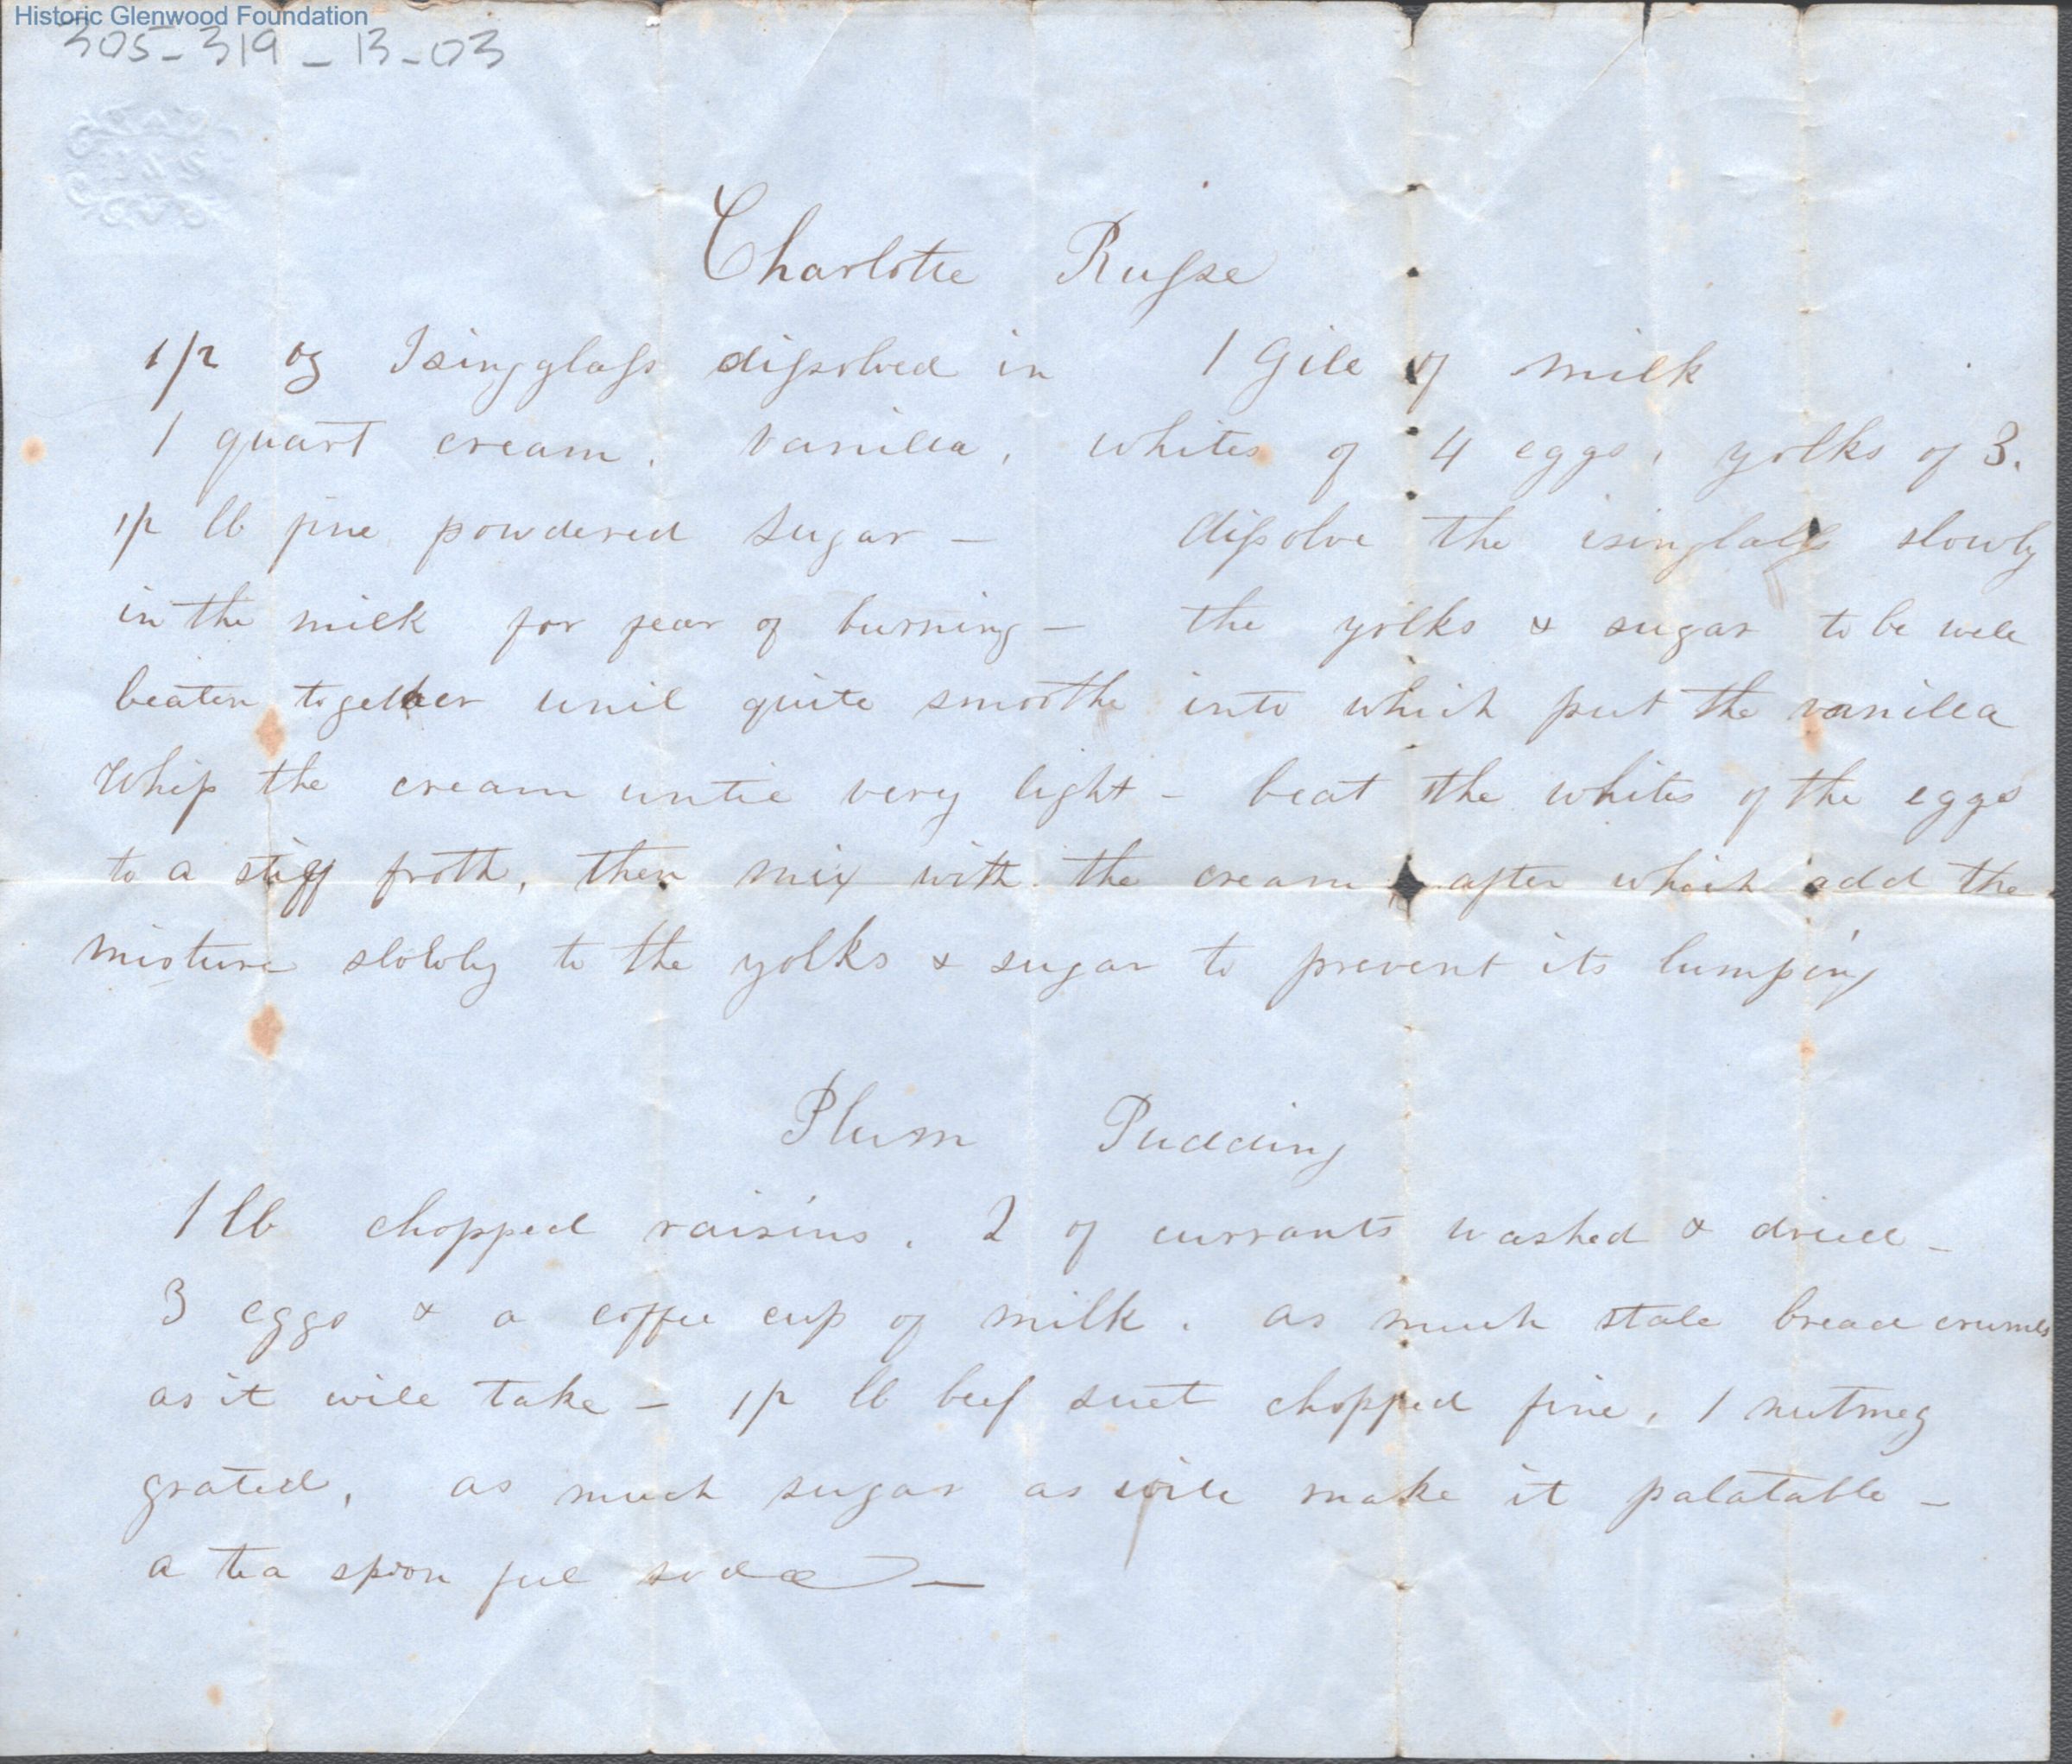 Historic Glenwood Foundation
305-319-13-03
Charlotte Russe
1/2 oz Isingglass dissolved in 1 Gill of milk
1 quart cream. vanilla, whites of 4 eggs, yolks of 3.
1/2 lb fine powdered sugar - dissolve the isinglass slowly
in the milk for fear of burning - the yolks & sugar to be well
beaten together unil quite smoothe into which put the vanilla
Whip the cream until very light - beat the whites of the eggs
to a stiff froth, then mix with the cream after which add the
misture slowly to the yolks & sugar to prevent its lumping
Plum Pudding
1 lb chopped raisins. 2 of currants washed & dried -
3 eggs & a coffee cup of milk. as much stale bread crumbs
as it will take - 1/2 lb beef suet chopped fine, 1 nutmeg
grated, as much sugar as will make it palatable -
a tea spoon full soda -